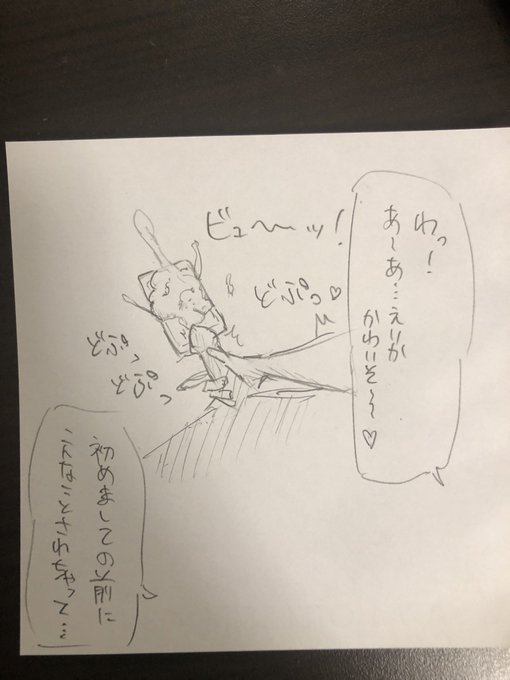 わっ!
あ〜あ…えいか
かわいそ〜〜♡
ビュ〜〜ッ!
どぷっ♡
どぷっ
どぷっ
初めましての前に
こんなことされちゃって…